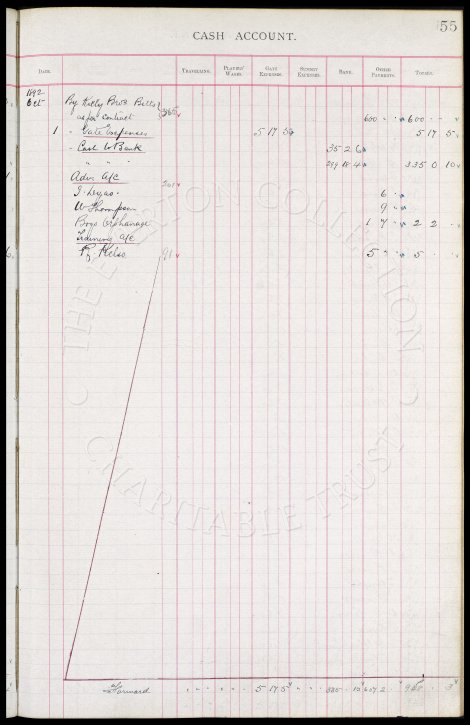 55
CASH ACCOUNT.
DATE. TRAVELLING. PLAYERS' WAGES. GATE EXPENSES. SUNDRY EXPENSES. BANK. OTHER PAYMENTS. TOTALS.
1892
Oct By Kelly Bros Bills 365
as per Contract 600 600
1 " Gate Expenses 5 17 5 5 17 5
" Cash to Bank 35 2 6
" " " 299 18 4 335 0 10
Adv. a/c 201
6
W Thompson 9
Boys Orphanage 1 7 2 2
Training a/c
91 5 5
Forward 5 17 5 335 10 607 2 948 3
THE EVERTON COLLECTION
CHARITABLE TRUST